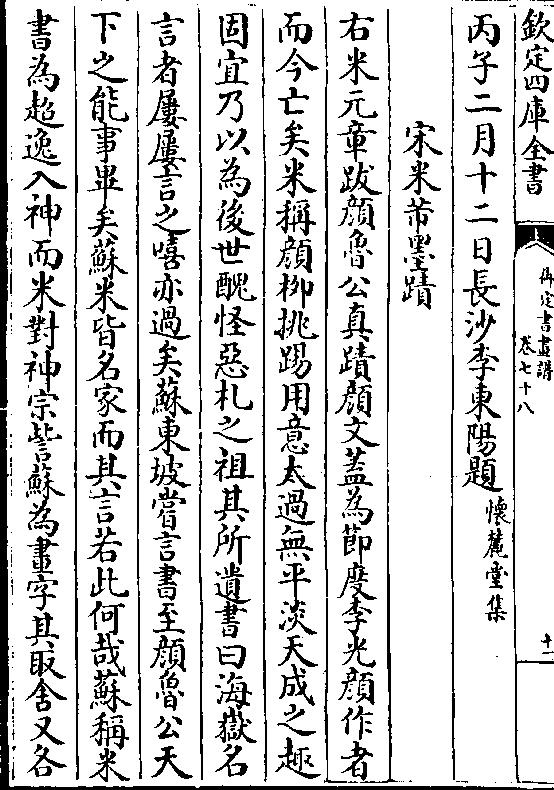 欽定四庫全書
御定書畫譜
卷七十八
十一
丙子二月十二日長沙李東陽題懷麓堂集
宋米芾墨蹟
右米元章跋顔魯公真蹟顔文蓋為節度李光顔作者
而今亡矣米稱顔柳挑踢用意太過無平淡天成之趣
固宜乃以為後世醜怪惡札之祖其所遺書曰海嶽名
言者屢屢言之嘻亦過矣蘇東坡嘗言書至顔魯公天
下之能事畢矣蘇米皆名家而其言若此何哉蘇稱米
書為超逸入神而米對神宗訾蘇為畫字其取舍又各